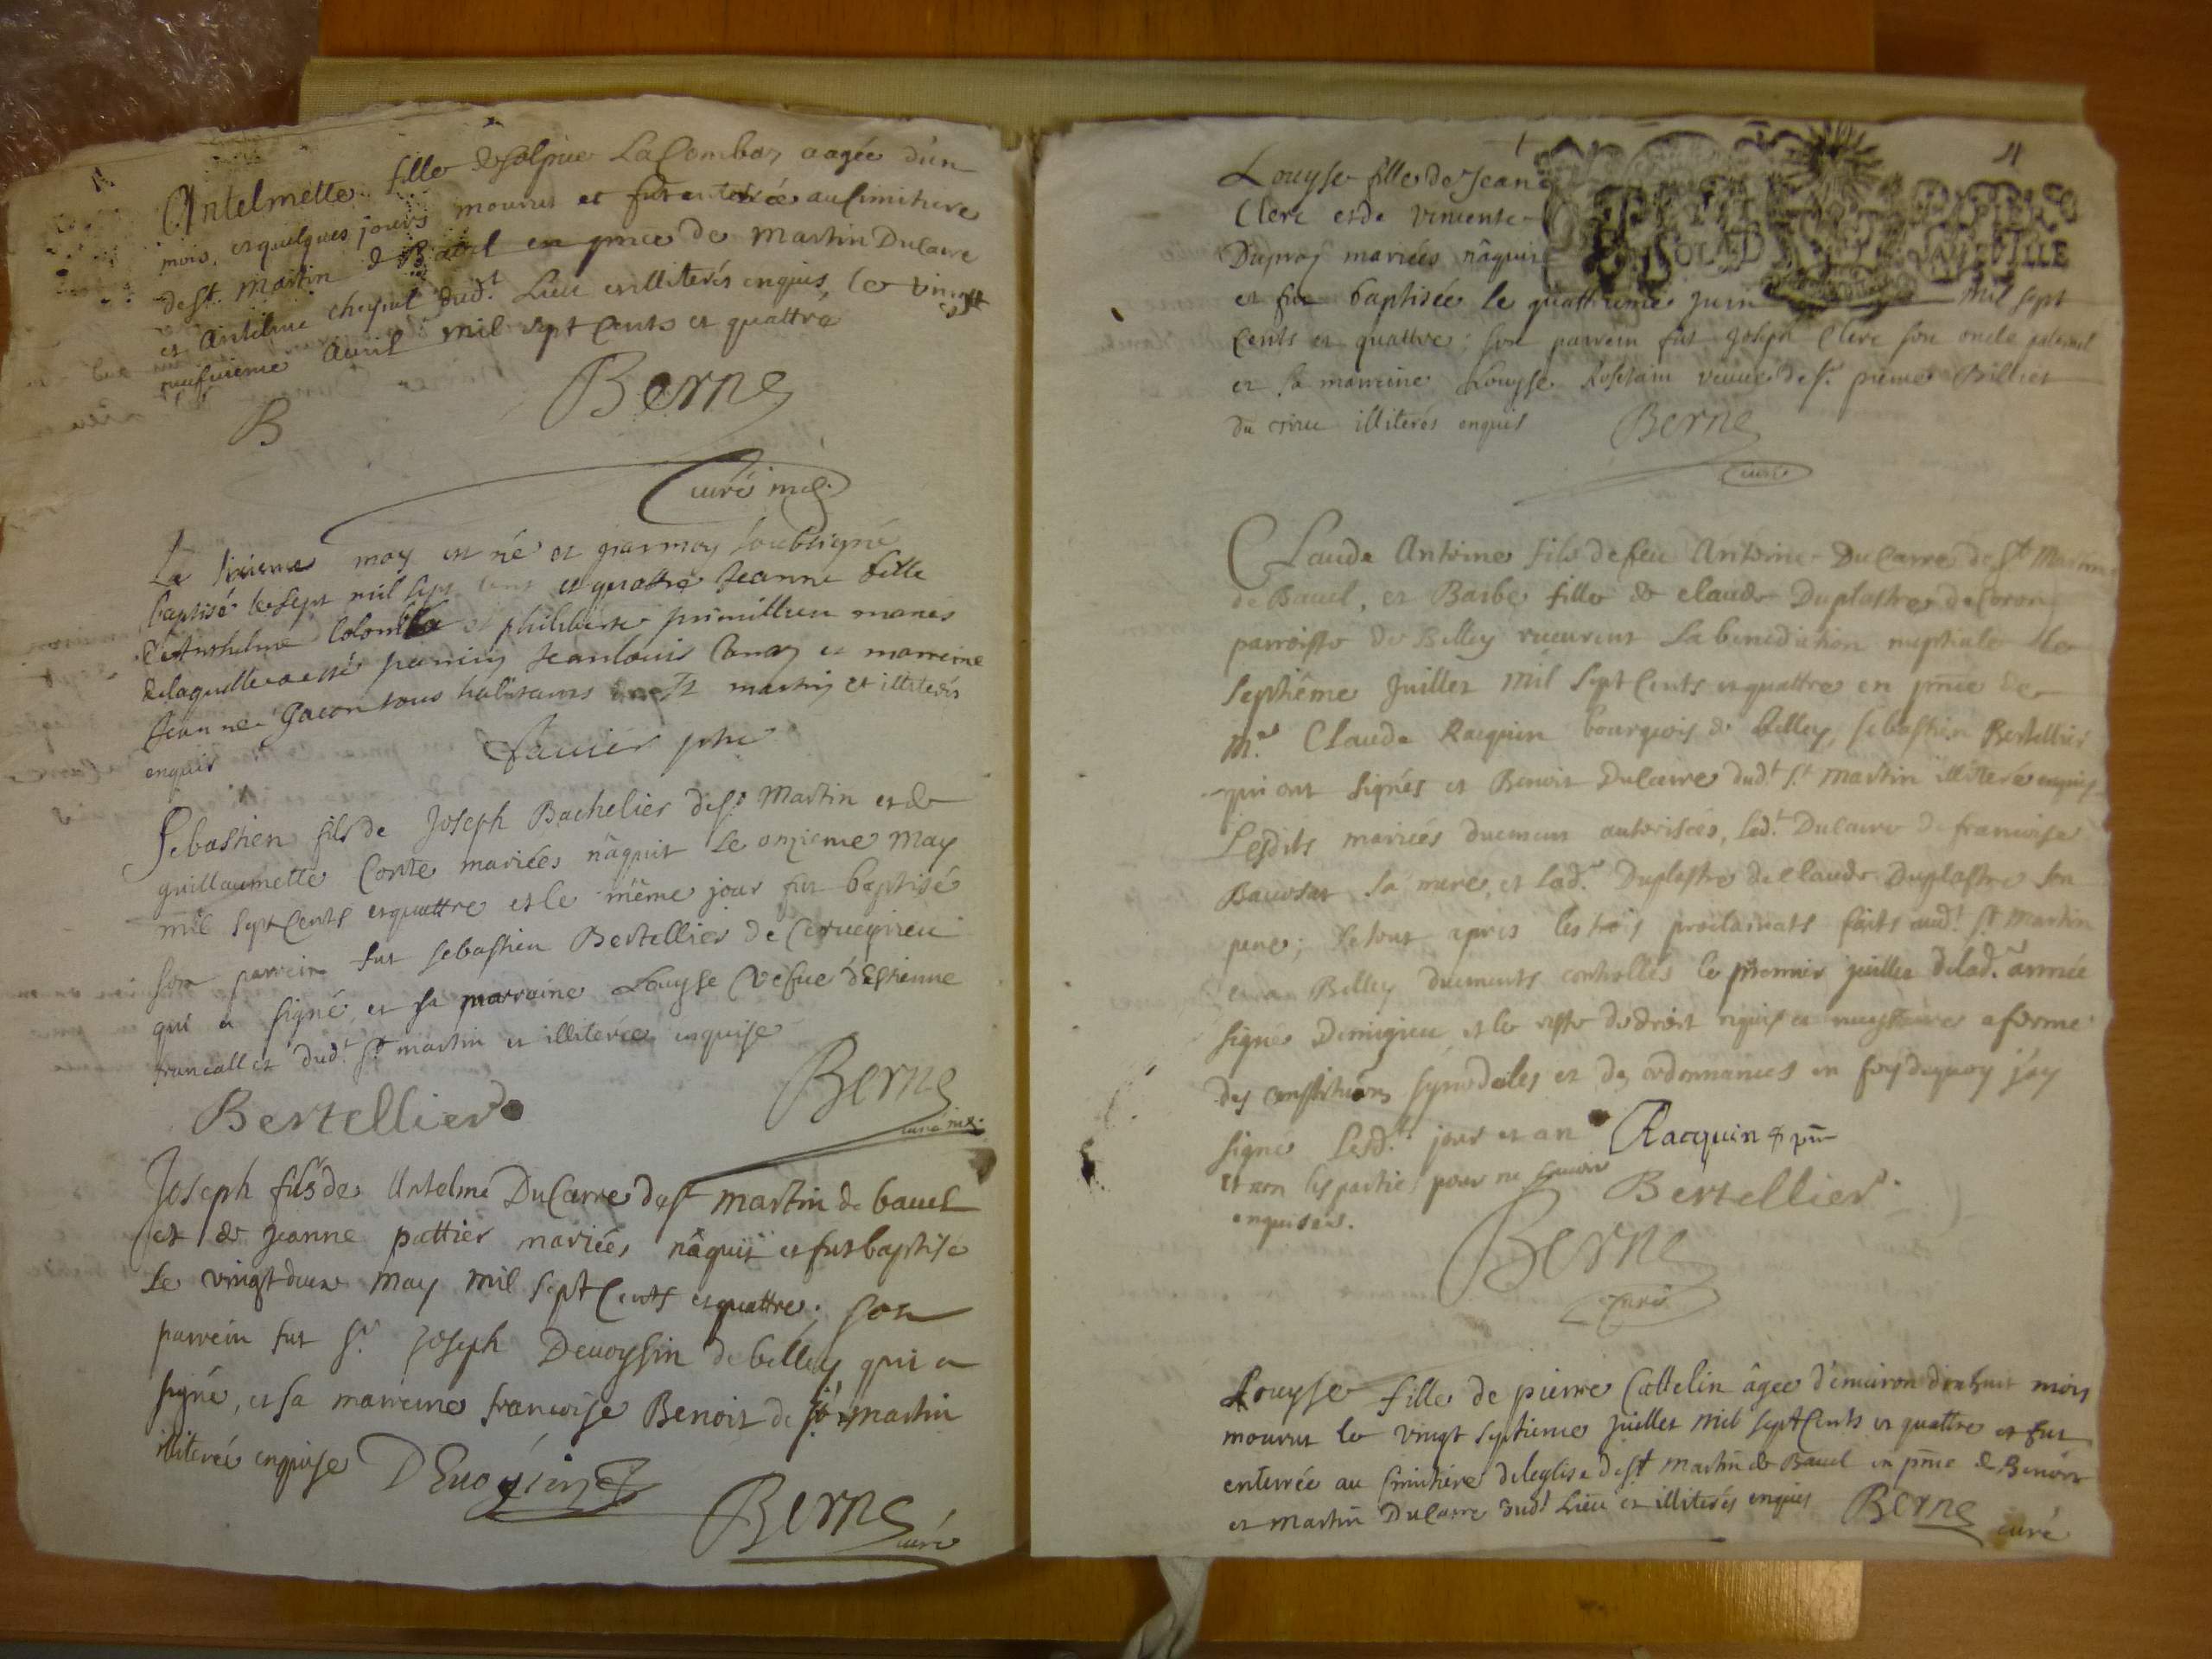 Antelmette fille de Lacombaz aagée d'un
mois, et quelques jours mourut et fut enterrée au simitiere
de st Martin de Bavel en pñce de Martin Ducarre
et Antelme dud.t Lieu et illiterés enquis, le vingt
neufvieme Avril mil sept Cents et quattre
B Berne
curé
Le may est né et par moy soubsigné
baptisé le sept mil sept cent et quattre Jeanne fille
d'Anthelme et philiberte primillieu mariés
de laquelle a esté parrin Jean louis et marreine
Jeanne Gacon tous habitans St martin et illiterés
enquis
Sebastien fils de Joseph Bachelier de st Martin et de
guillaumette Conte mariées nâquit le onzieme May
mil sept Cents et quattre et le même jour fut baptisé
son parrein fut Sebastien Bertellier de
qui a signé, et sa marraine Louyse Vefue d'Estienne
dud.t st martin et illiterée enquise
Bertellier Berne
Joseph fils de Antelme DuCarre de st Martin de bavel
et de Jeanne pattier mariées nâquit et fut baptisé
le vingt deux may mil sept Cents et quattre; son
parrein fut Sr. Joseph Devoysin de belley qui a
signé, et sa marreine francoise Benoit de st martin
illiterée enquise Berne
curé
4
Louyse fille de Jean
Clerc et de vincente
Dupraz mariées nâquit
et fut baptisée le quattrieme juin mil sept
Cents et quattre; son parrein fut Joseph Clerc son oncle paternel
et sa marreine Louyse veuve de Sr. pierre Billiet
du illiterés enquis Berne
curé
Claude Antoine fils de feu Antoine DuCarre de St Martin
de Bavel, et Barbe fille de claude Duplastre de Coron
parroisse de Belley receurent La benediction nuptiale le
septiéme Juillet mil sept Cents et quattre en pñce de
Claude Racquin bourgeois de Belley, sebastien Bertellier
qui ont signés et Benoit DuCarre dud.t s.t Martin illiteré enquis
Lesdits mariées duement autorisées, led.t Ducarre de francoise
sa mere, et lad.e Duplastre de claude Duplastre son
pere; Le tout apres les trois proclamats faits aud.t st Martin
et a Belley duements controllés le premier juillet de lad.e année
signé Demigieu, et le reste de droit requis et a forme
des constitutions synodales et des ordonnances en foy dequoy j'ay
signé Lesd.ts jour et an Racquin
et non les parties pour ne scavoir
enquises. Bertellier
Berne
Curé
Louyse fille de pierre Cattelin âgee d'environ dixhuit mois
mourut le vingt septieme juillet mil sept Cents et quattre et fut
enterrée au simitiere de leglise de st Martin de Bavel en pñce de Benoit
et Martin DuCarre dud.t Lieu et illiterés enquis Berne
curé